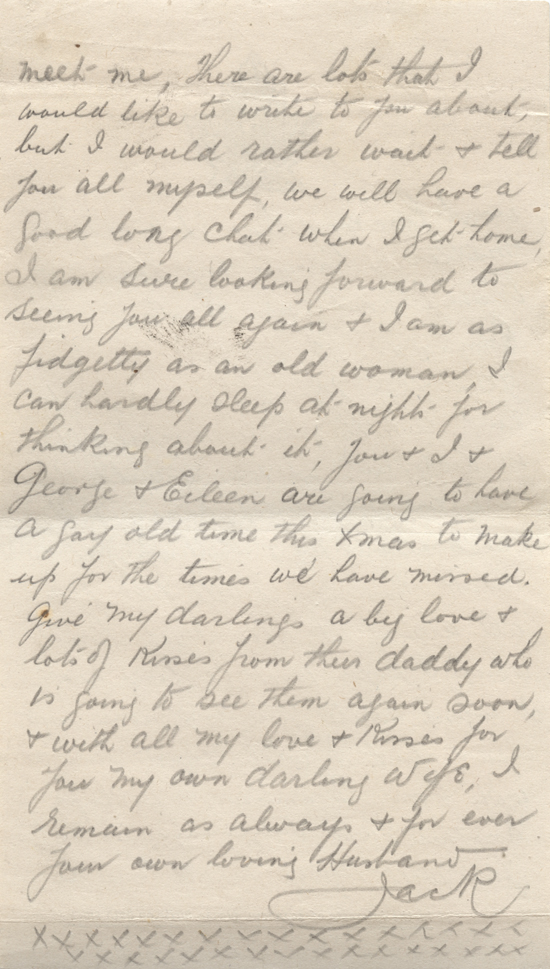 meet me, There are lots that I
would like to write to you about,
but I would rather wait & tell
you all myself, we will have a
good long chat when I get home,
I am sure looking forward to
seeing you all again & I am as
fidgetty as an old woman, I
can hardly sleep at nights for
thinking about it, you & I &
George & Eileen are going to have
a gay old time this Xmas to make
up for the times we have missed.
Give my darlings a big love &
lots of Kisses from their daddy who
is going to see them again soon,
& with all my love & Kisses for
you my own darling Wife, I
remain as always & for ever
your own loving Husband
Jack
x x x x x x x x x x x x x x
x x x x x x x x x x x x x